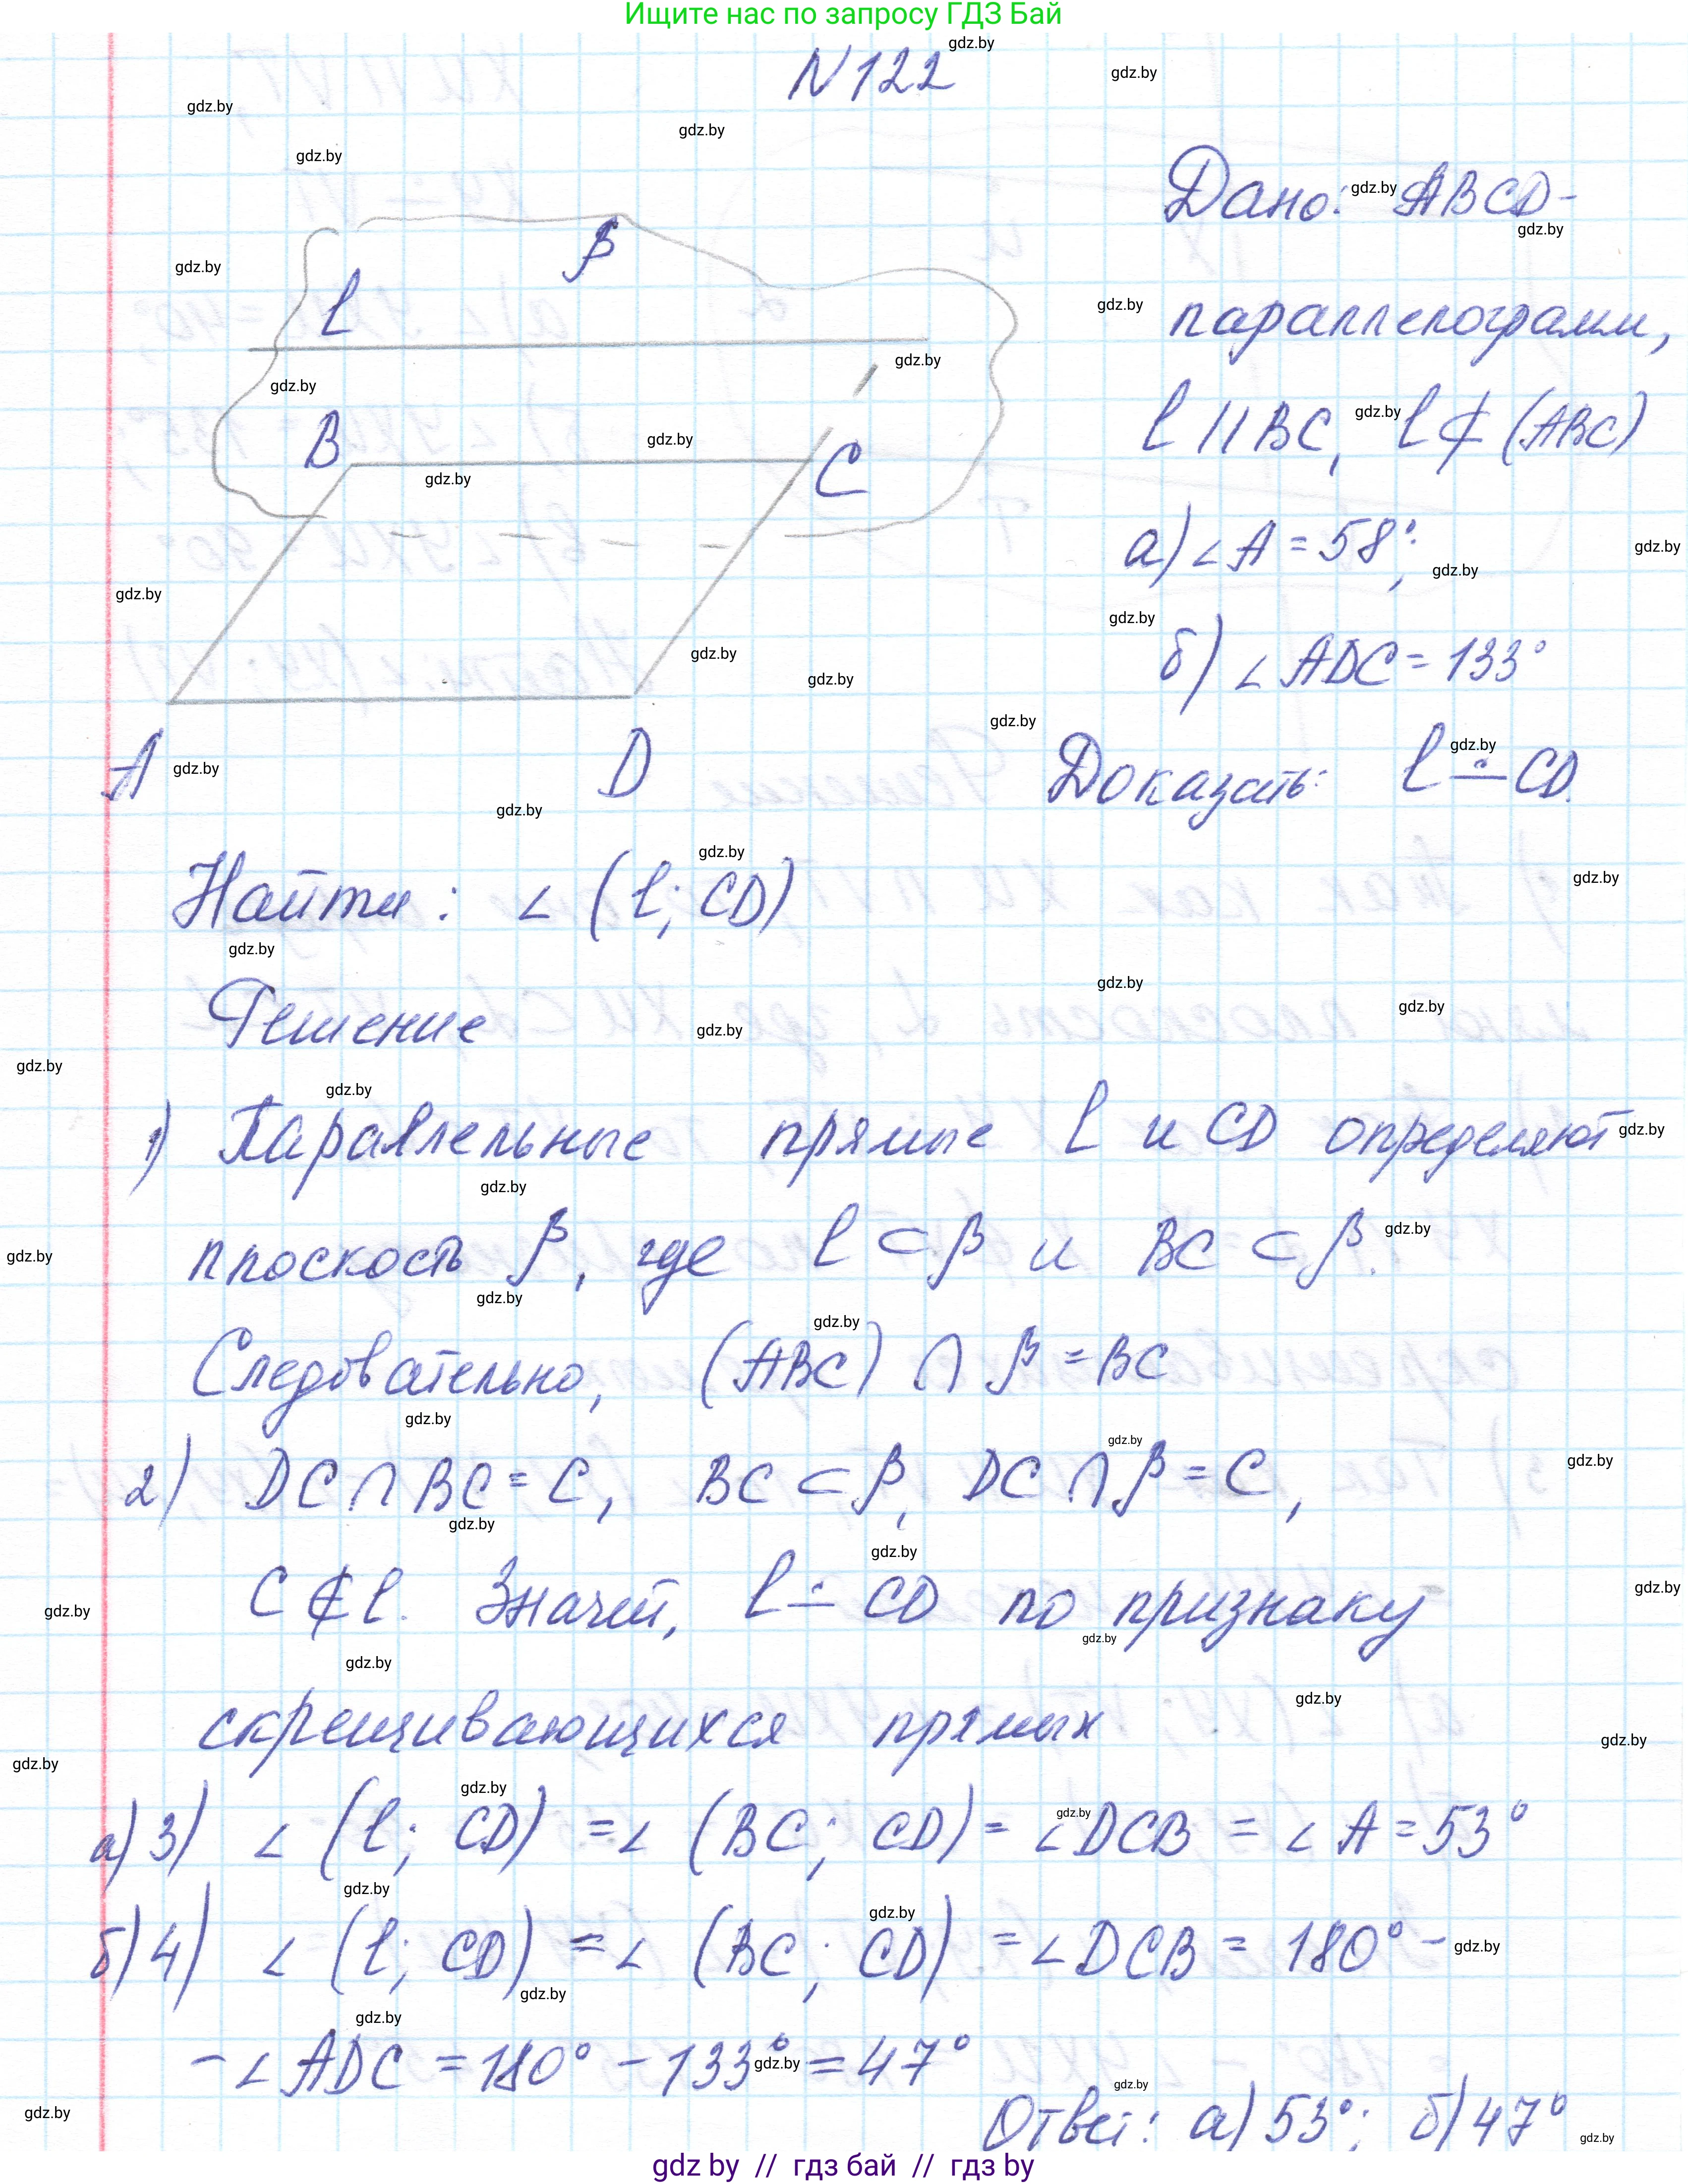 Ищите нас по запросу ГДЗ Бай
N 122
Дано: ABCD-
параллелограмм,
l || BC, l ⊄ (ABC)
а) ∠A = 58°;
б) ∠ADC = 133°
Доказать: l ∸ CD.
β
l
B
C
A
D
Найти: ∠ (l; CD)
Решение
1) Параллельные прямые l и CD определяют
плоскость β, где l ⊂ β и BC ⊂ β.
Следовательно, (ABC) ∩ β = BC
2) DC ∩ BC = C, BC ⊂ β, DC ∩ β = C,
C ⊄ l. Значит, l ∸ CD по признаку
скрещивающихся прямых
а) 3) ∠ (l; CD) = ∠ (BC; CD) = ∠DCB = ∠A = 53°
б) 4) ∠ (l; CD) = ∠ (BC; CD) = ∠DCB = 180° -
- ∠ADC = 180° - 133° = 47°
Ответ: а) 53°; б) 47°
gdz by // гдз бай // гдз by